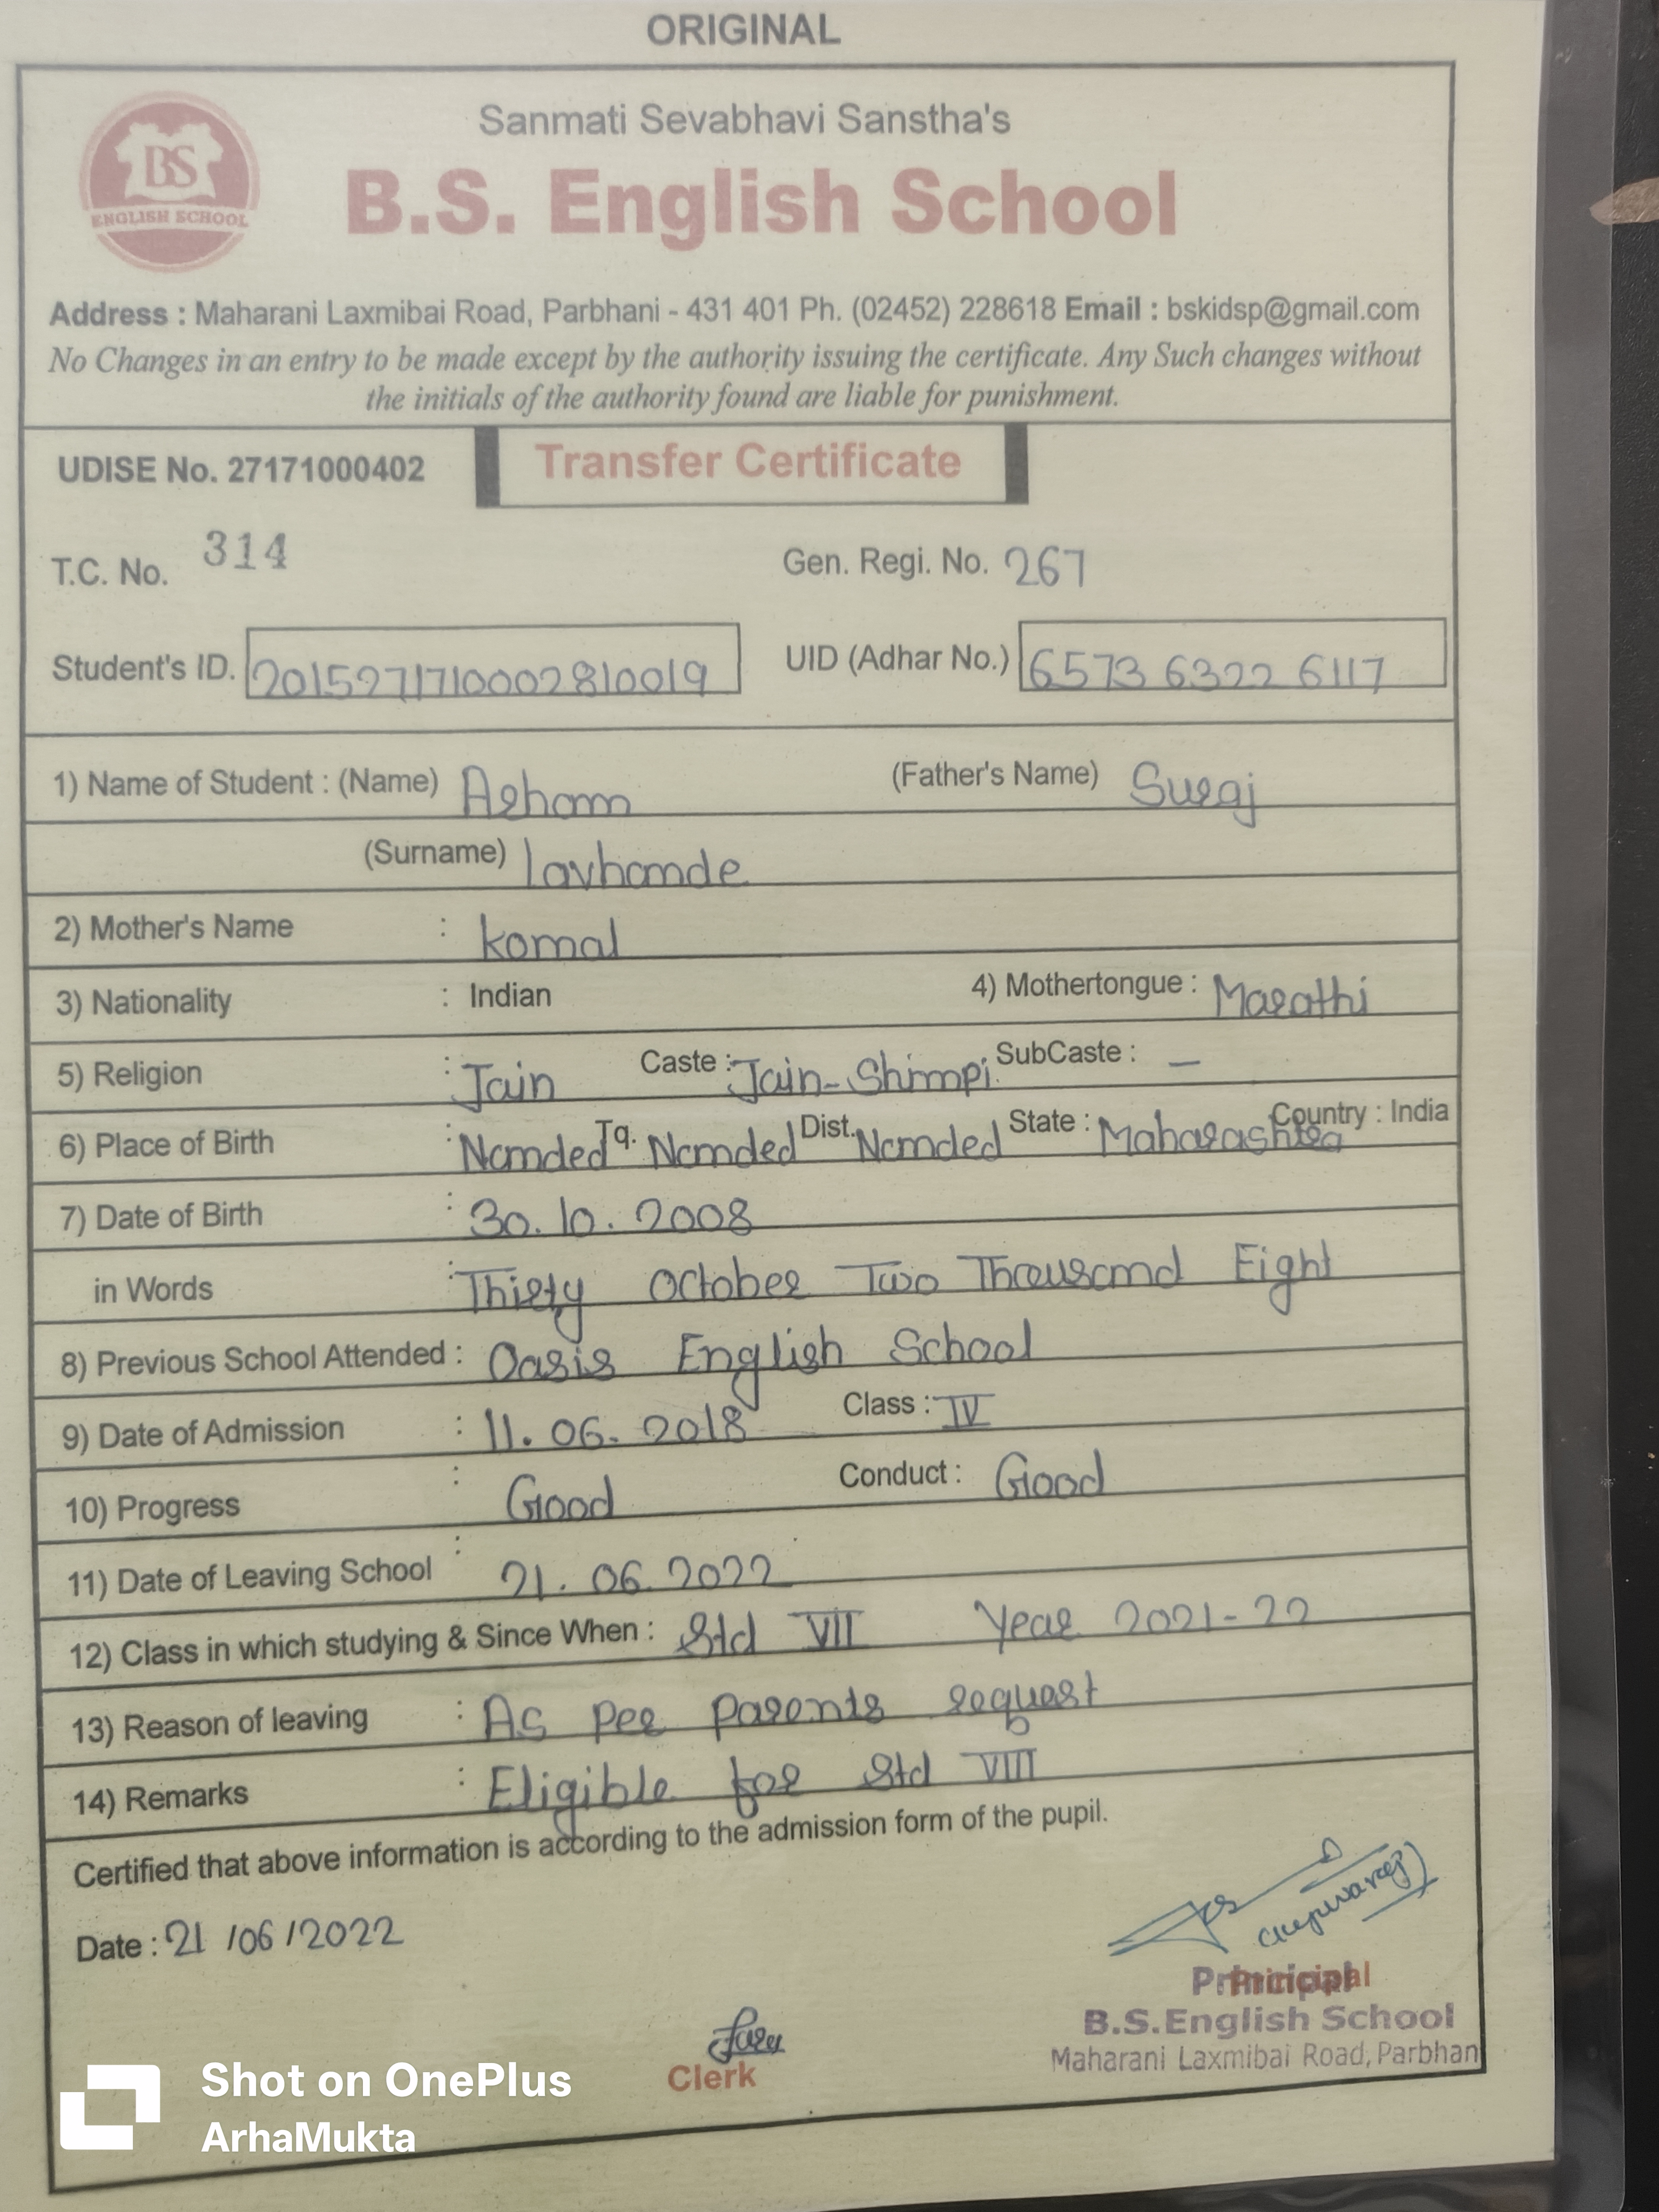 ORIGINAL
Sanmati Sevabhavi Sanstha's
BS
ENGLISH SCHOOL
B.S. English School
Address : Maharani Laxmibai Road, Parbhani - 431 401 Ph. (02452) 228618 Email : bskidsp@gmail.com
No Changes in an entry to be made except by the authority issuing the certificate. Any Such changes without
the initials of the authority found are liable for punishment.
UDISE No. 27171000402 Transfer Certificate
T.C. No. 314 Gen. Regi. No. 267
Student's ID. 2015271710002810019 UID (Adhar No.) 6573 6322 6117
1) Name of Student : (Name) Arham (Father's Name) Suraj
(Surname) lavhande
2) Mother's Name : komal
3) Nationality : Indian 4) Mothertongue : Marathi
5) Religion : Jain Caste : Jain-Shimpi SubCaste : —
6) Place of Birth : Nanded Tq. Nanded Dist. Nanded State : Maharashtra Country : India
7) Date of Birth : 30.10.2008
in Words : Thirty October Two Thousand Eight
8) Previous School Attended : Oasis English School
9) Date of Admission : 11.06.2018 Class : IV
10) Progress : Good Conduct : Good
11) Date of Leaving School : 21.06.2022
12) Class in which studying & Since When : Std VII Year 2021-22
13) Reason of leaving : As per parents request
14) Remarks : Eligible for Std VIII
Certified that above information is according to the admission form of the pupil.
Date : 21/06/2022
Principal
Principal
B.S.English School
Maharani Laxmibai Road, Parbhan
Clerk
Shot on OnePlus
ArhaMukta